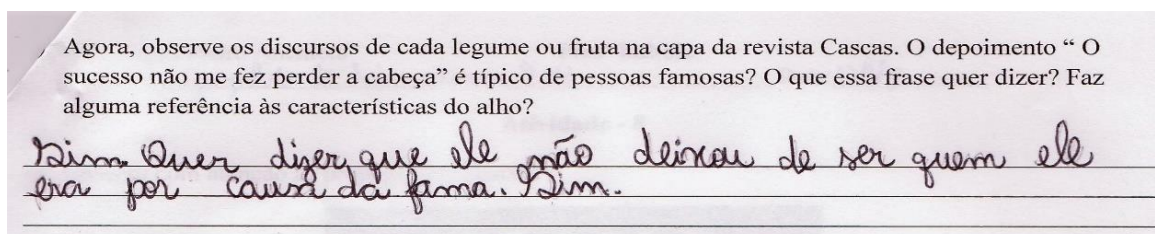 Agora, observe os discursos de cada legume ou fruta na capa da revista Cascas. O depoimento “ O
sucesso não me fez perder a cabeça” é típico de pessoas famosas? O que essa frase quer dizer? Faz
alguma referência às características do alho?
Sim. Quer dizer que ele não deixou de ser quem ele
era por causa da fama. Sim.